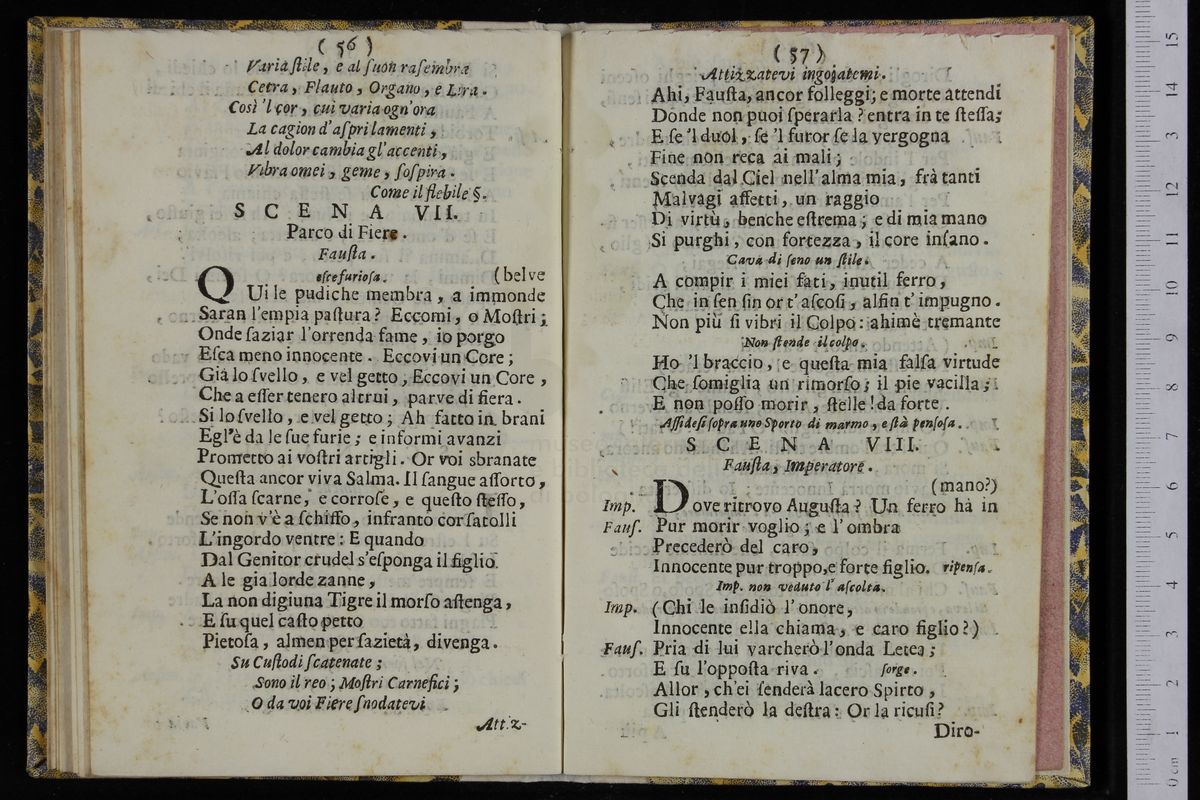 ( 56 )
Varia ſtile, e al ſuon raſembra
Cetra, Flauto, Organo, e Lira.
Così 'l cor, cui varia ogn'ora
La cagion d'aſpri lamenti,
Al dolor cambia gl'accenti,
Vibra omei, geme, ſoſpira.
Come il flebile §.
SCENA VII.
Parco di Fiere.
Fauſta.
eſce furioſa. (belve
QUi le pudiche membra, a immonde
Saran l'empia paſtura? Eccomi, o Moſtri;
Onde ſaziar l'orrenda fame, io porgo
Eſca meno innocente. Eccovi un Core;
Già lo ſvello, e vel getto, Eccovi un Core,
Che a eſſer tenero altrui, parve di fiera.
Si lo ſvello, e vel getto; Ah fatto in brani
Egl'è da le ſue furie; e informi avanzi
Prometto ai voſtri artigli. Or voi sbranate
Queſta ancor viva Salma. Il ſangue aſſorto,
L'oſſa ſcarne, e corroſe, e queſto ſteſſo,
Se non v'è a ſchiffo, infranto cor ſatolli
L'ingordo ventre: E quando
Dal Genitor crudel s'eſponga il figlio
A le gia lorde zanne,
La non digiuna Tigre il morſo aſtenga,
E ſu quel caſto petto
Pietoſa, almen per ſazietà, divenga.
Su Cuſtodi ſcatenate;
Sono il reo; Moſtri Carnefici;
O da voi Fiere ſnodatevi
Attiz-
( 57 )
Attizzatevi ingojatemi.
Ahi, Fauſta, ancor folleggi; e morte attendi
Donde non puoi ſperarla? entra in te ſteſſa;
E ſe 'l duol, ſe 'l furor ſe la vergogna
Fine non reca ai mali;
Scenda dal Ciel nell'alma mia, frà tanti
Malvagi affetti, un raggio
Di virtù, benche eſtrema; e di mia mano
Si purghi, con fortezza, il core inſano.
Cava di ſeno un ſtile.
A compir i miei fati, inutil ferro,
Che in ſen ſin or t'aſcoſi, alfin t'impugno.
Non più ſi vibri il Colpo: ahimè tremante
Non ſtende il colpo.
Ho 'l braccio, e queſta mia falſa virtude
Che ſomiglia un rimorſo; il pie vacilla;
E non poſſo morir, ſtelle! da forte.
Aſſideſi ſopra uno Sporto di marmo, e ſtà penſoſa.
SCENA VIII.
Fauſta, Imperatore.
(mano?)
Imp. DOve ritrovo Auguſta? Un ferro hà in
Fauſ. Pur morir voglio; e l'ombra
Precederò del caro,
Innocente pur troppo, e forte figlio. ripenſa.
Imp. non veduto l'aſcolta.
Imp. (Chi le inſidiò l'onore,
Innocente ella chiama, e caro figlio?)
Fauſ. Pria di lui varcherò l'onda Letea;
E ſu l'oppoſta riva. ſorge.
Allor, ch'ei ſenderà lacero Spirto,
Gli ſtenderò la deſtra: Or la ricuſi?
Diro-